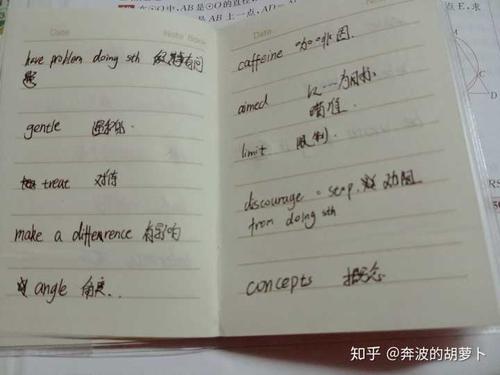 在⊙O中,AB是⊙O的直径
AB上一点,AD
点E,求
Date
Note Book
have problem doing sth 做某事有问
题
gentle 温和的.
treat 对待
make a differrence 有影响
angle 角度..
Date
caffeine 咖啡因.
aimed 以…为目标.
瞄准.
limit 限制.
discourage = stop. 劝阻
from doing sth
concepts 概念
知乎 @奔波的胡萝卜